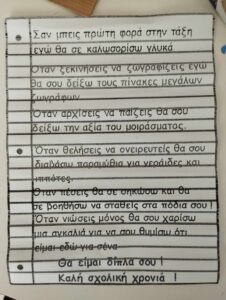 Σαν μπεις πρώτη φορά στην τάξη
εγώ θα σε καλωσορίσω γλυκά
Όταν ξεκινήσεις να ζωγραφίζεις εγώ
θα σου δείξω τους πίνακες μεγάλων
ζωγράφων
Όταν αρχίσεις να παίζεις θα σου
δείξω την αξία του μοιράσματος.
Όταν θελήσεις να ονειρευτείς θα σου
διαβάσω παραμύθια για νεράιδες και
ιππότες.
Όταν πέσεις θα σε σηκώσω και θα
σε βοηθήσω να σταθείς στα πόδια σου !
Όταν νιώσεις μόνος θα σου χαρίσω
μια αγκαλιά για να σου θυμίσω ότι
είμαι εδώ για σένα
Θα είμαι δίπλα σου !
Καλή σχολική χρονιά !